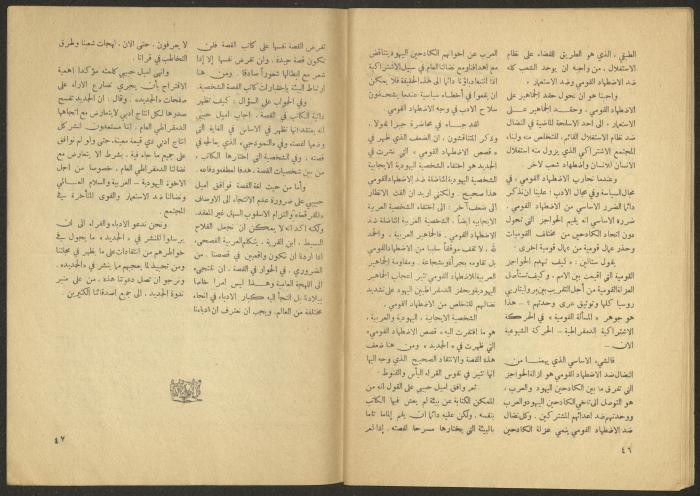 الطبقي . الذي هو الطريق للقضاء على نظام
الاستغلال . من واجبه ان يوحد الشعب كله
ضد الاضطهاد القومي وضد الاستعمار .
واجبنا هو ان نحول حقد الجماهير على
الاضطهاد القومي ، وحقد الجماهير على
الاستعمار ، الى احد الاسلحة الماضية في النضال
ضد نظام الاستغلال القائم . للتخلص منه ولبناء
المجتمع الاشتراكي الذي يزول منه استغلال
الانسان للانسان واضطهاد شعب لآخر .
وعندما نحارب الاضطهاد القومي ، في
مجال السياسة وفي مجال الادب : علينا ان نذكر
دائما الضرر الاساسي من الاضطهاد القومي .
ضرره الاساسي انه يقيم الحواجز التي تحول
دون اتحاد الكادحين من مختلف القوميات
وحذر عمال قومية من عمال قومية اخرى .
يقول ستالين : « كيف تهدم الحواجز
القومية التي اقيمت بين الامم . وكيف تستأصل
العزلة القومية من اجل التقريب بين بروليتاريي
روسيا كلها وتوثيق عرى وحدتهم ؟ – هذا
هو جوهر « المسألة القومية » في الحركة
الاشتراكية الدمقراطية – الحركة الشيوعية
الان –
فالشيء الاساسي الذي يهمنا من
النضال ضد الاضطهاد القومي هو ازالة الحواجز
التي تفرق ما بين الكادحين اليهود والعرب ،
هو التوصل الى تآخي الكادحين اليهود والعرب
ووحدتهم ضد اعدائهم المشتركين . وكل نضال
ضد الاضطهاد القومي ينمي عزلة الكادحين
العرب عن اخوانهم الكادحين اليهود يتناقض
مع اهدافنا ومع نضالنا العام في سبيل الاشتراكية
اذا انتبه ادباؤنا دائما الى هذه الحقيقة فلا يمكن
ان يقعوا في أخطاء سياسية عندما يشحذون
سلاح الادب في وجه الاضطهاد القومي .
لقد جاء في محاضرة جبرا نقولا .
وذكر المناقشون ، ان الضعف الذي ظهر في
« قصص الاضطهاد القومي » التي نشرت في
الجديد هو اختفاء الشخصية اليهودية الايجابية
الشخصية اليهودية المناضلة ضد الاضطهاد القومي
هذا صحيح . ولكنني اريد ان الفت الانظار
الى ضعف آخر . الى اختفاء الشخصية العربية
الايجابية ايضاً . الشخصية العربية المناضلة ضد
الاضطهاد القومي . فالجماهير العربية ، والحمد
لله ، لا تقف موقفاً سلبياً من الاضطهاد القومي
بل تقاومه بجرأة وبشجاعة . ومقاومة الجماهير
العربية للاضطهاد القومي تثير اعجاب الجماهير
اليهودية وتحفز الدمقراطيين اليهود على تشديد
نضالهم للتخلص من الاضطهاد القومي .
الشخصية الايجابية ، اليهودية والعربية ،
هو ما افتقرت اليه « قصص الاضطهاد القومي »
التي ظهرت في « الجديد » ومن هنا ضعف
هذه القصة والانتقاد الصحيح الذي وجه اليها
انها تثير في نفوس القراء اليأس والقنوط .
ثم وافق اميل حبيبي على القول انه من
الممكن الكتابة عن بيئة لم يعش فيها الكاتب
بنفسه . ولكن عليه دائما ان يلم إلماما تاما
بالبيئة التي يختارها مسرحا لقصته . إذا لم
٤٦
تفرض القصة نفسها على كاتب القصة فلن
تكون قصة جيدة . ولن تفرض نفسها إلا إذا
شعر مع ابطالها شعوراً صادقاً . ومن هنا
ارتباط البيئة باختبارات كاتب القصة الشخصية .
وفي الجواب على السؤال : كيف تظهر
ذاتية الكاتب في القصة . اجاب اميل حبيبي
انه يعتقد انها تظهر في الاساس في الغاية التي
وضعها لقصته وفي «النموذجي» الذي يعالجه في
قصته ، وفي الشخصية التي اختارها الكاتب ،
من بين شخصيات القصة ، هدفا لعطفه ودفاعه .
وأما من حيث لغة القصة فوافق اميل
حبيبي على ضرورة عدم الالتجاء الى الاوصاف
والتزام الاسلوب السهل غير المعقد.
ولكنه اكد انه لا يمكن ان نجعل الفلاح
البسيط ، ابن القرية ، يتكلم العربية الفصحى .
اذا اردنا ان نكون واقعيين في قصصنا . من
الضروري ، في الحوار في القصة . ان نلتجيء
الى اللهجة العامية وهذا ليس امراً خاصاً
ببلادنا بل التجأ اليه كبار الادباء في انحاء
مختلفة من العالم . ويجب ان نعترف ان ادباءنا
لا يعرفون . حتى الآن . لهجات شعبنا وطرق
التخاطب في قرانا .
وانهى اميل حبيبي كلمته مؤكدا اهمية
الاقتراح بأن يجري تصارع الآراء على
صفحات «الجديد» . وقال : ان الجديد تفسح
صدرها لكل انتاج أدبي لا يتعارض مع اتجاهها
الدمقراطي العام . إننا مستعدون لنشر كل
انتاج ادبي ذي قيمة معينة . حتى ولو لم نوافق
على جميع ما جاء فيه . بشرط الا يتعارض مع
نضالنا الدمقراطي العام . خصوصا من اجل
الاخوة اليهودية – العربية والسلام العالمي
ونضالنا ضد الاستعمار والقوى المتأخرة في
المجتمع .
ونحن ندعو الادباء والقراء الى ان
يرسلوا للنشر في « الجديد » ما يجول في
خواطرهم من انتقادات على ما يظهر في مجلتنا
ومن تحبيذ لما يعجبهم مما ينشر في «الجديد» .
ونرجو ان تصل دعوتنا هذه . من على منبر
ندوة الجديد . الى جميع اصدقائنا الكثيرين .
٤٧